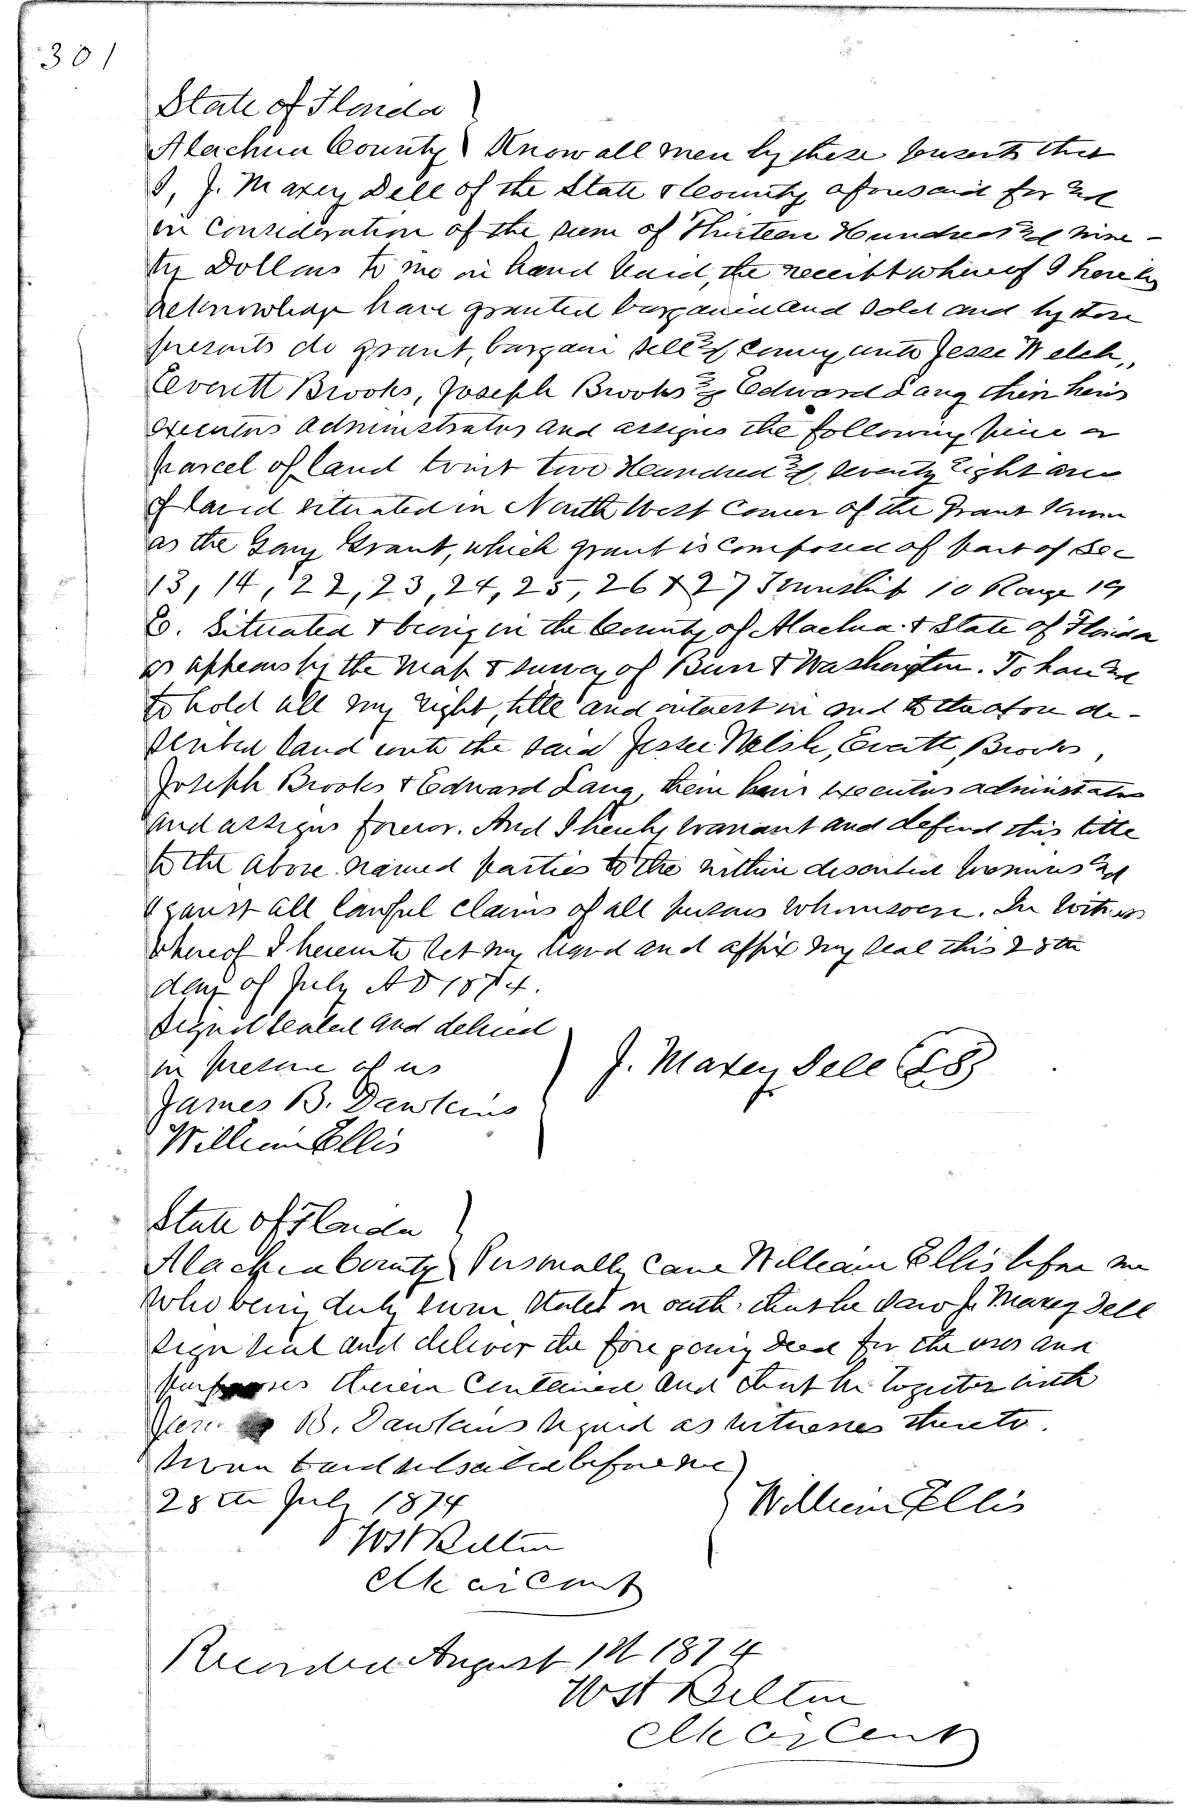 301
State of Florida
Alachua County } Know all men by these presents that
I, J. Maxey Dell of the State & County aforesaid for and
in consideration of the sum of Thirteen Hundred and nine-
ty Dollars to me in hand paid, the receipt whereof I hereby
acknowledge have granted bargained and sold and by these
presents do grant, bargain sell and convey unto Jesse Welch,,
Everett Brooks, Joseph Brooks and Edward Lang their heirs
executors administrators and assigns the following piece or
parcel of land towit two Hundred and seventy eight acres
of land situated in North West Corner of the Grant Known
as the Gary Grant, which grant is composed of part of Sec
13, 14, 22, 23, 24, 25, 26 & 27 Township 10 Range 19
E. Situated & being in the County of Alachua & State of Florida
as appears by the Map & survey of Burr & Washington. To have and
to hold all my right, title and interest in and to the above de-
scribed land unto the said Jesse Welsh, Everett, Brooks,
Joseph Brooks & Edward Lang, their heirs executors administrators
and assigns forever. And I hereby warrant and defend this title
to the above named parties to the within described premises and
against all lawful claims of all persons whomsoever. In Witness
whereof I hereunto set my hand and affix my seal this 28th
day of July A D 1874.
Signed sealed and delivered
in presence of us
James B. Dawkins
William Ellis
J. Maxey Dell (LS)
State of Florida
Alachua County } Personally came William Ellis before me
who being duly sworn, states on oath that he saw J. Maxey Dell
sign seal and deliver the foregoing deed for the uses and
purposes therein contained and that he together with
James B. Dawkins signed as witnesses thereto.
Sworn to and subscribed before me
28th July 1874
William Ellis
W H Belton
Clk Cir Court
Recorded August 1st 1874
W H Belton
Clk Cir Court